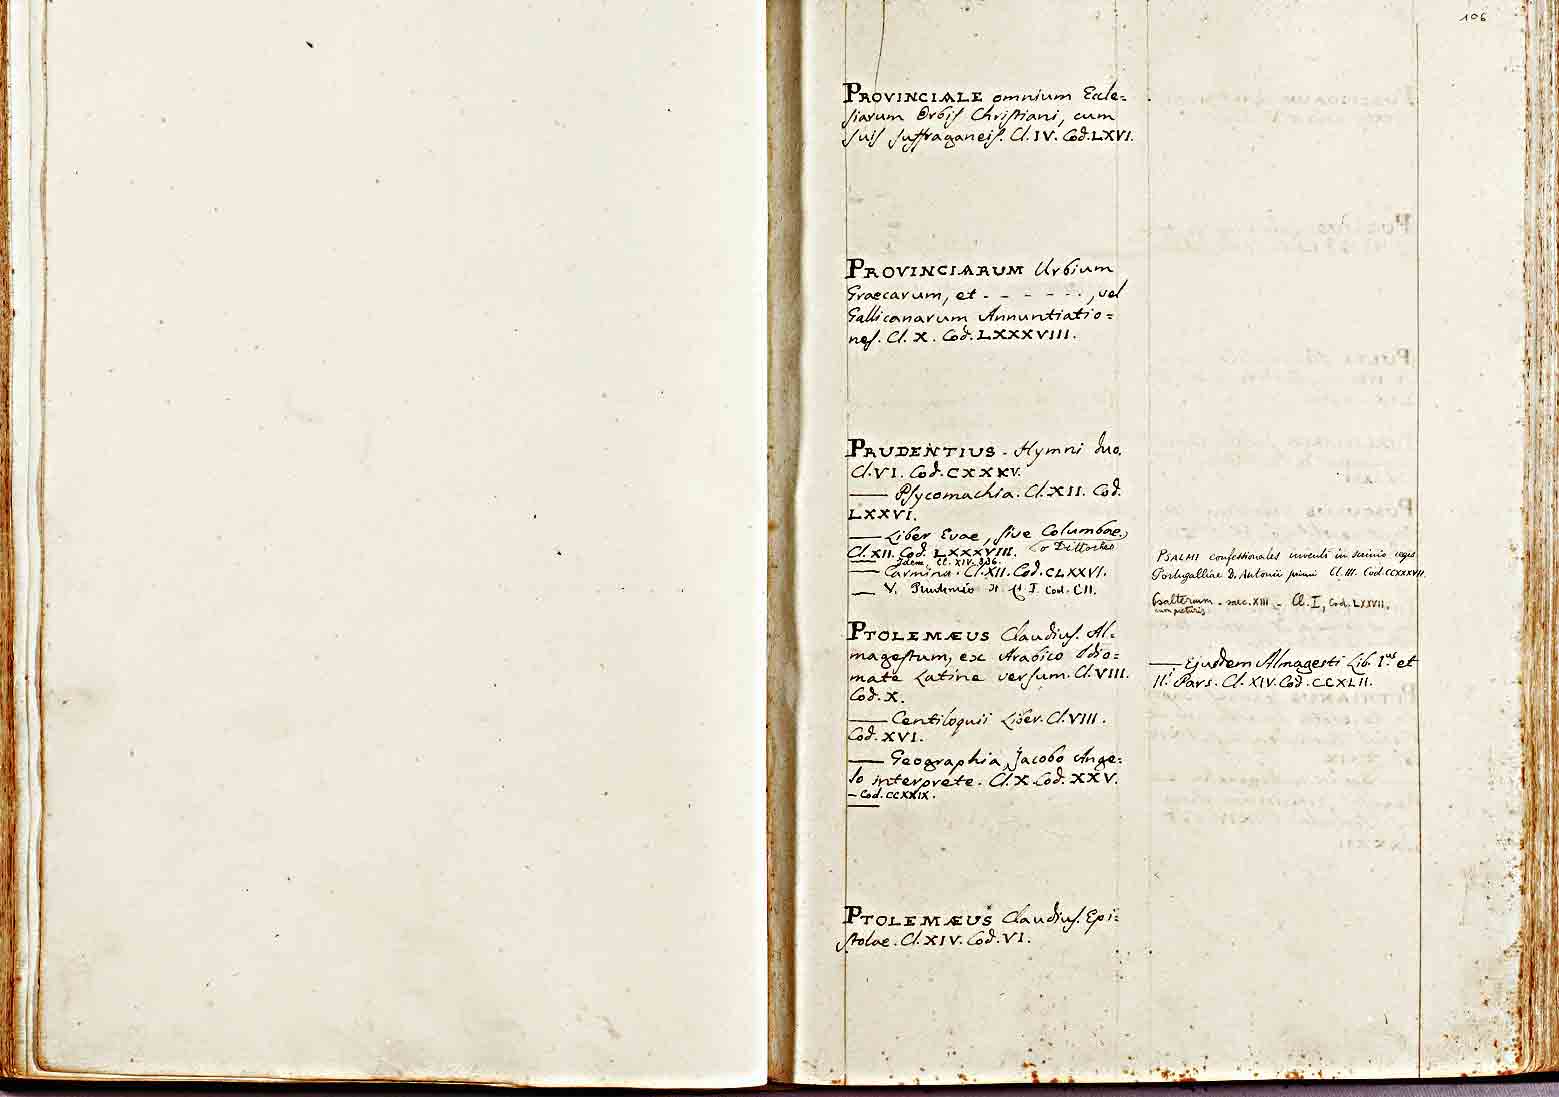 106
PROVINCIALE omnium Eccle=
siarum Orbis Christiani, cum
suis suffraganeis. Cl. IV. Cod. LXVI.
PROVINCIARUM Urbium
Graecarum, et - - - - - -, vel
Gallicanarum Annuntiatio=
nes. Cl. X. Cod. LXXXVIII.
PRUDENTIUS. Hymni duo.
Cl. VI. Cod. CXXXV.
—— Psycomachia. Cl. XII. Cod.
LXXVI.
—— Liber Evae, sive Columbae,
Cl. XII. Cod. LXXXVIII. o Dittocheo
—— Idem, Cl. XIV.
—— Carmina. Cl. XII. Cod. CLXXVI.
—— V. Prudenzio Cl. I. Cod. CII.
PTOLEMÆUS Claudius. Al=
magestum, ex Arabico Idio=
mate Latine versum. Cl. VIII.
Cod. X.
—— Centiloquii Liber. Cl. VIII.
Cod. XVI.
—— Geographia, Jacobo Ange=
lo interprete. Cl. X. Cod. XXV.
— Cod. CCXXIX.
PTOLEMÆUS Claudius. Epi=
stolae. Cl. XIV. Cod. VI.
PSALMI confessionales inventi in scrinio regis
Portugalliae D. Antonii primi Cl. III. Cod. CCXXXVII.
Psalterium - saec. XIII - Cl. I, Cod. LXXVII.
cum picturis
—— Ejusdem Almagesti Lib. I.us et
II.i Pars. Cl. XIV. Cod. CCXLII.